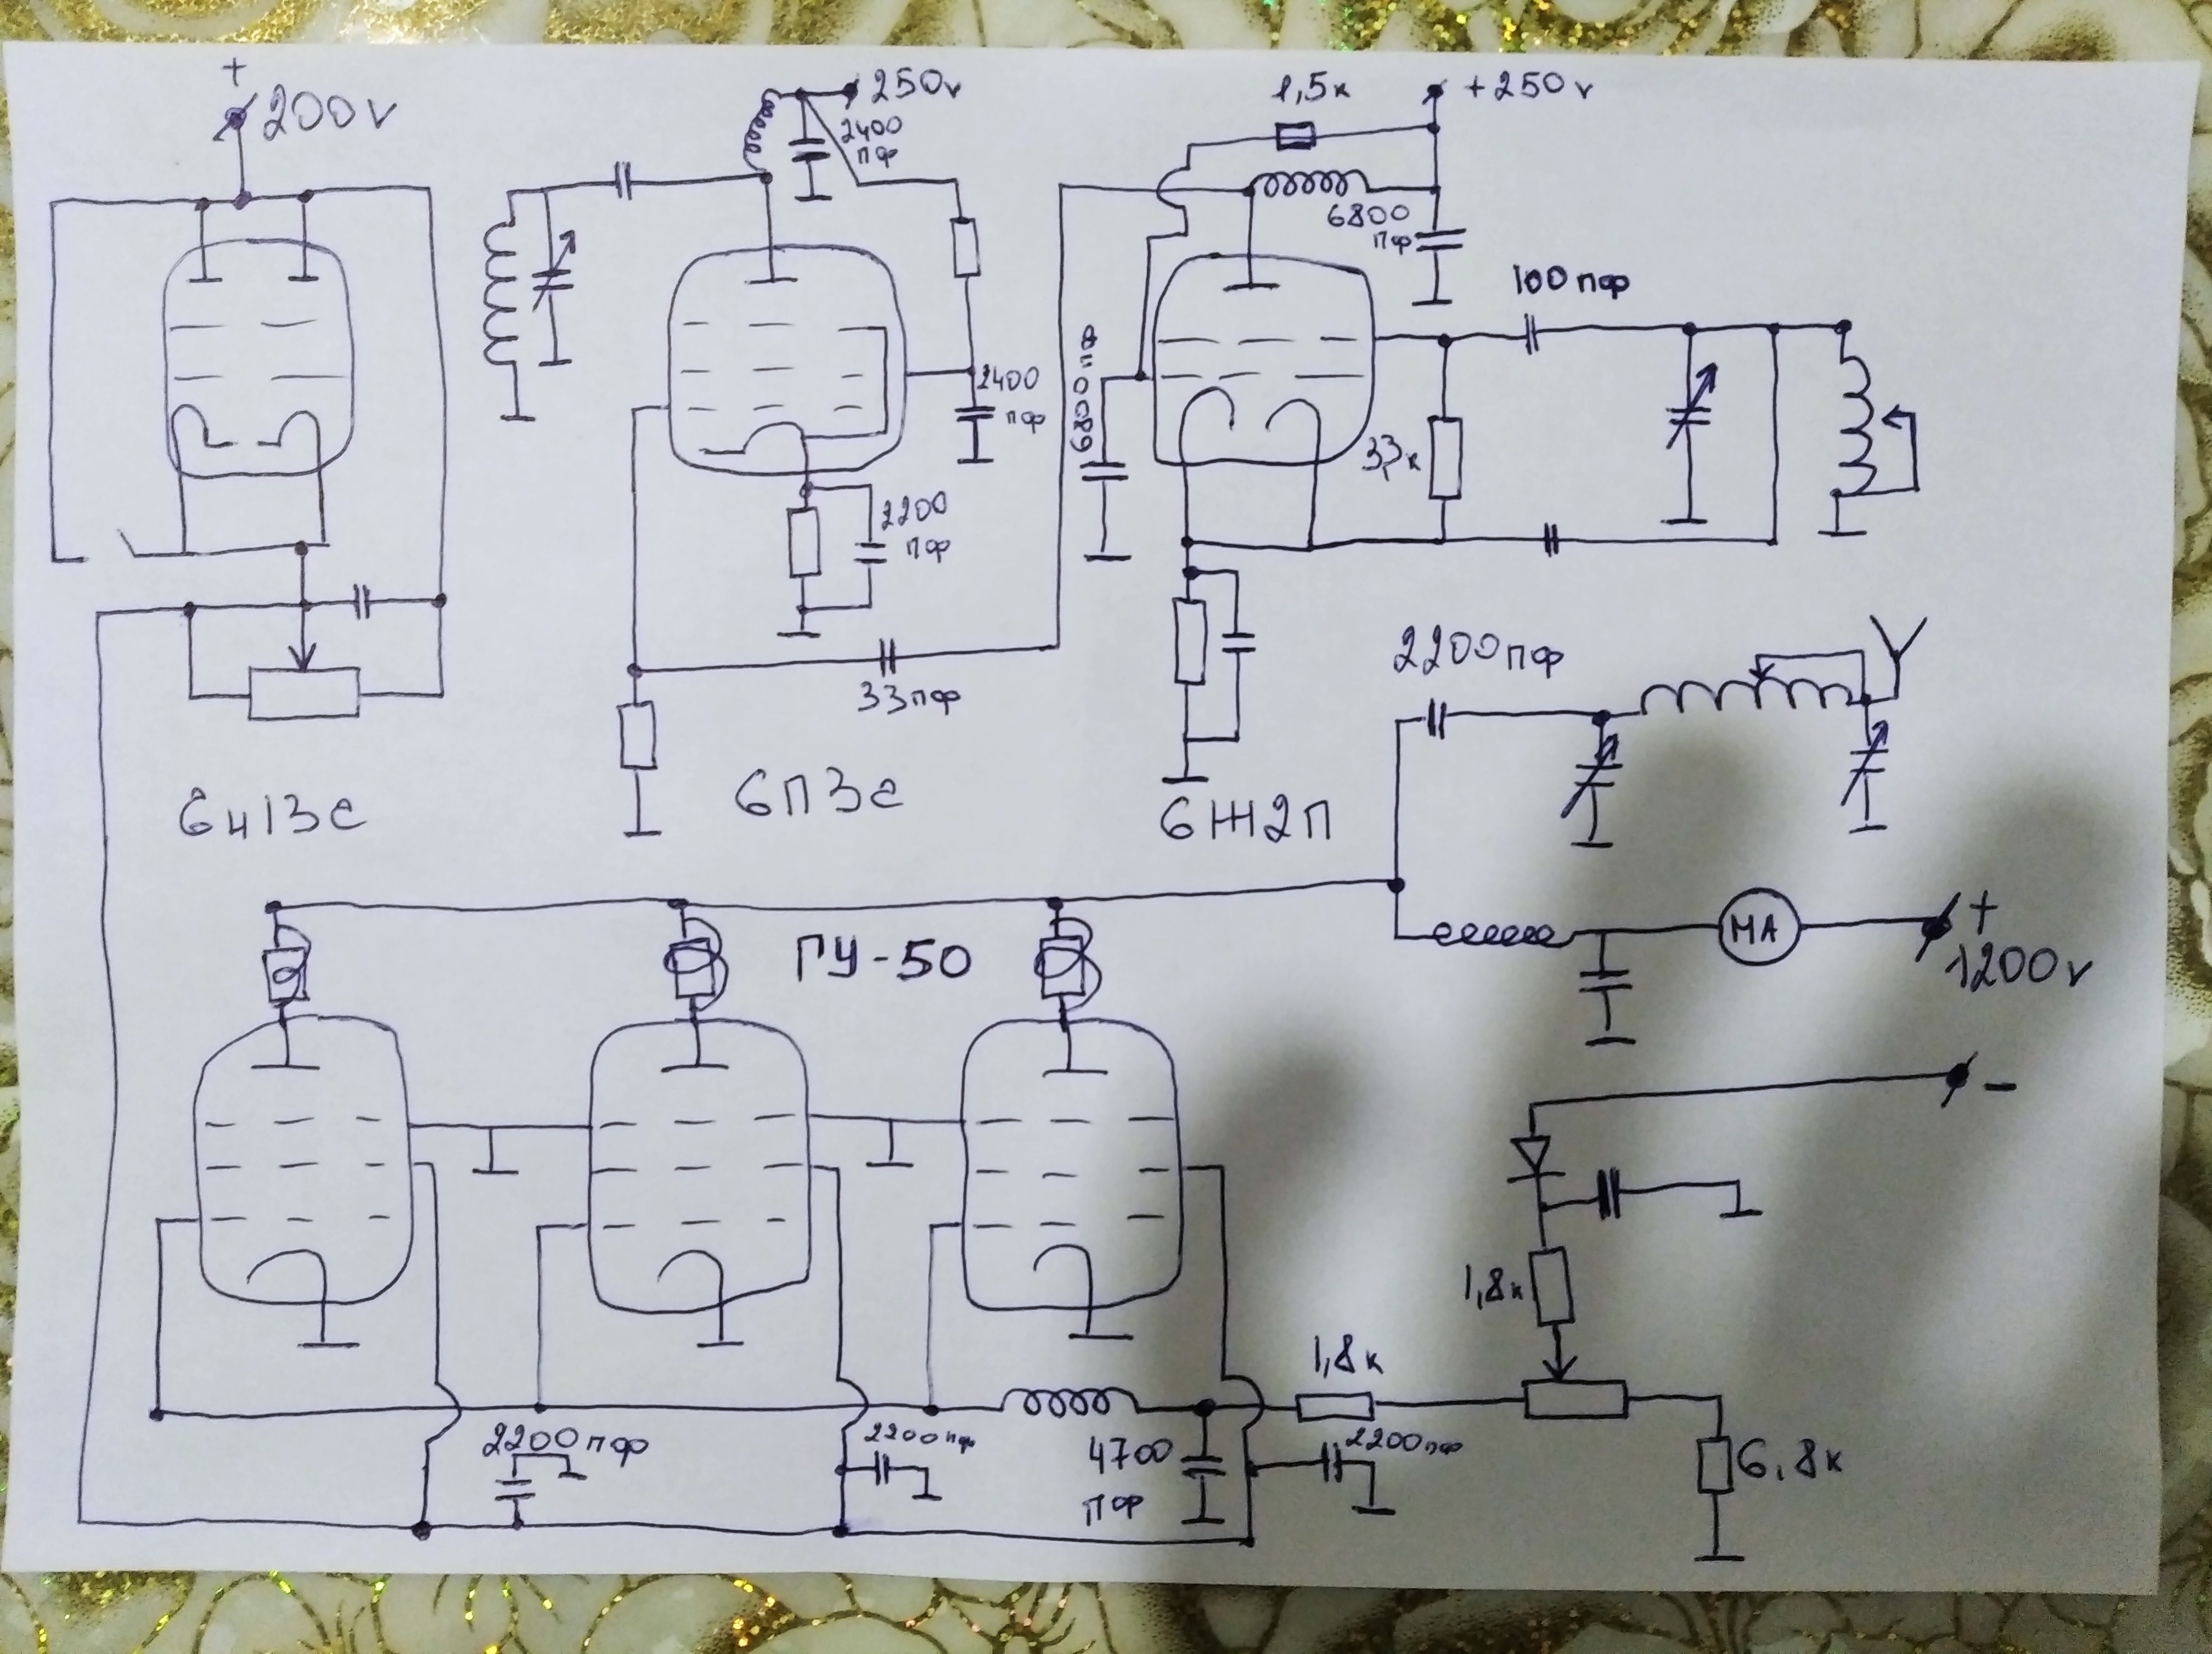 +
200v
250v
2400
пф
1,5к
+250v
6800
пф
100пф
6800пф
2400
пф
3,3к
2200
пф
33пф
2200пф
6н13с
6П3с
6Ж2П
ГУ-50
МА
+
1200v
-
1,8к
1,8к
2200пф
2200пф
4700
пф
2200пф
6,8к